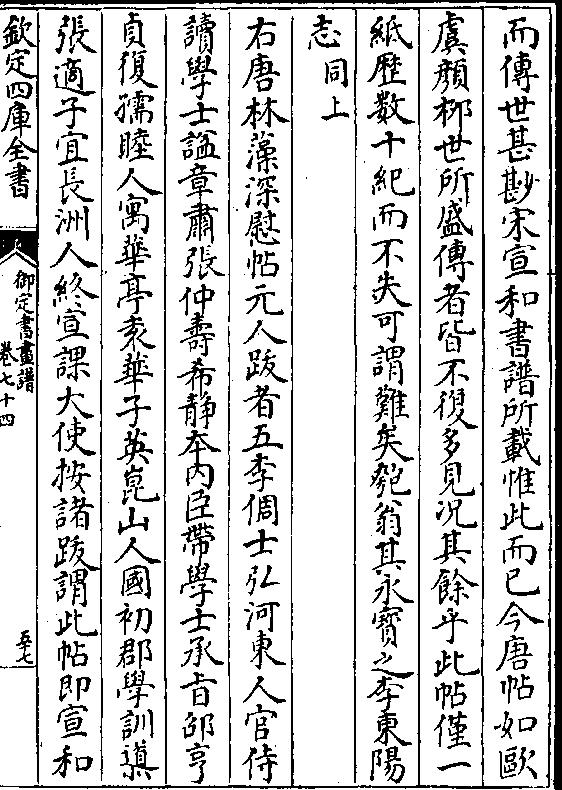 而傳世甚尠宋宣和書譜所載惟此而已今唐帖如歐
虞顔栁世所盛傳者皆不復多見况其餘乎此帖僅一
紙歴數十紀而不失可謂難矣匏翁其永寳之李東陽
志同上
右唐林藻深慰帖元人跋者五李倜士弘河東人官侍
讀學士謚章肅張仲壽希靜本内臣帶學士承㫖邵亨
貞復孺睦人寓華亭袁華子英崑山人國初郡學訓導
張適子宜長洲人終宣課大使按諸跋謂此帖即宣和
欽定四庫全書
御定書畫譜
卷七十四
五十七